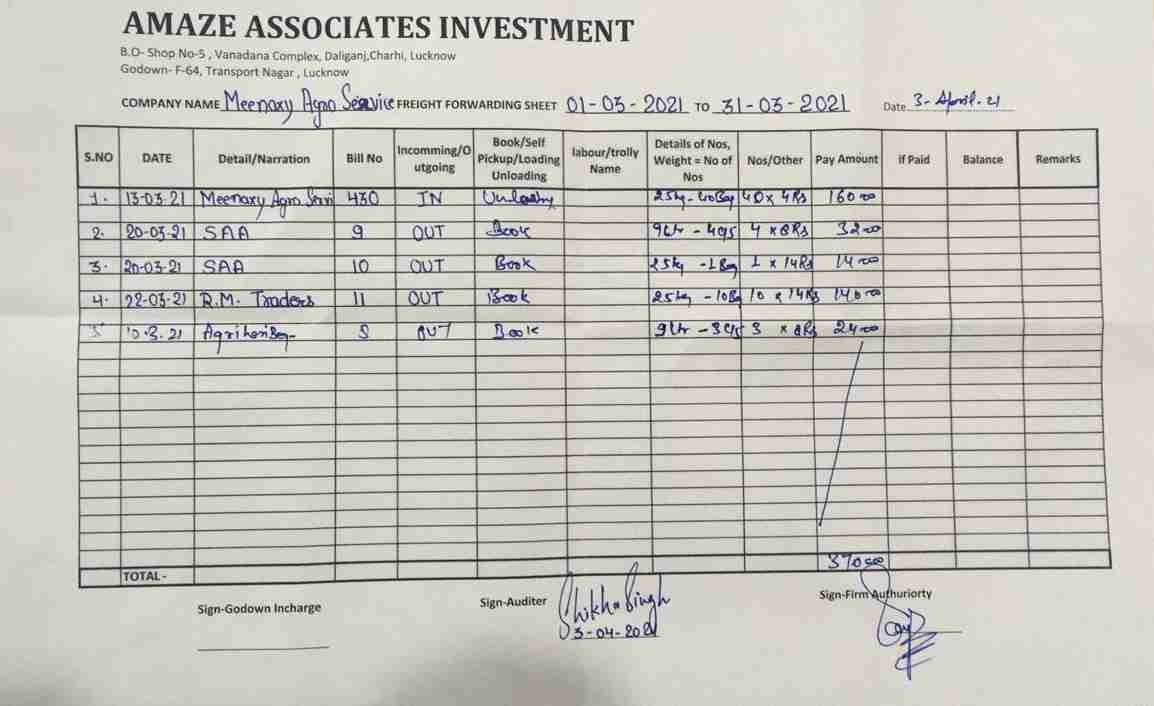 AMAZE ASSOCIATES INVESTMENT
B.O- Shop No-5 , Vanadana Complex, Daliganj,Charhi, Lucknow
Godown- F-64, Transport Nagar , Lucknow
COMPANY NAME Meenaxy Agro Service FREIGHT FORWARDING SHEET 01-03-2021 TO 31-03-2021 Date 3-April-21
S.NO DATE Detail/Narration Bill No Incomming/Outgoing Book/Self Pickup/Loading Unloading labour/trolly Name Details of Nos, Weight = No of Nos Nos/Other Pay Amount if Paid Balance Remarks
1. 13-03-21 Meenaxy Agro Servi 430 IN Unloading 25kg-40Bag 40 x 4Rs 160 00
2. 20-03-21 SAA 9 OUT Book 9Ltr - 4c/s 4 x 8Rs 32 00
3. 20-03-21 SAA 10 OUT Book 25kg -1Bag 1 x 14Rs 14 00
4. 22-03-21 R.M. Traders 11 OUT Book 25kg -10Bg 10 x 14Rs 140 00
5 10.3.21 OUT Book 9Ltr -3c/s 3 x 8Rs 24 00
TOTAL- 370 00
Sign-Godown Incharge Sign-Auditer Shikha Singh Sign-Firm Authuriorty
3-04-2021